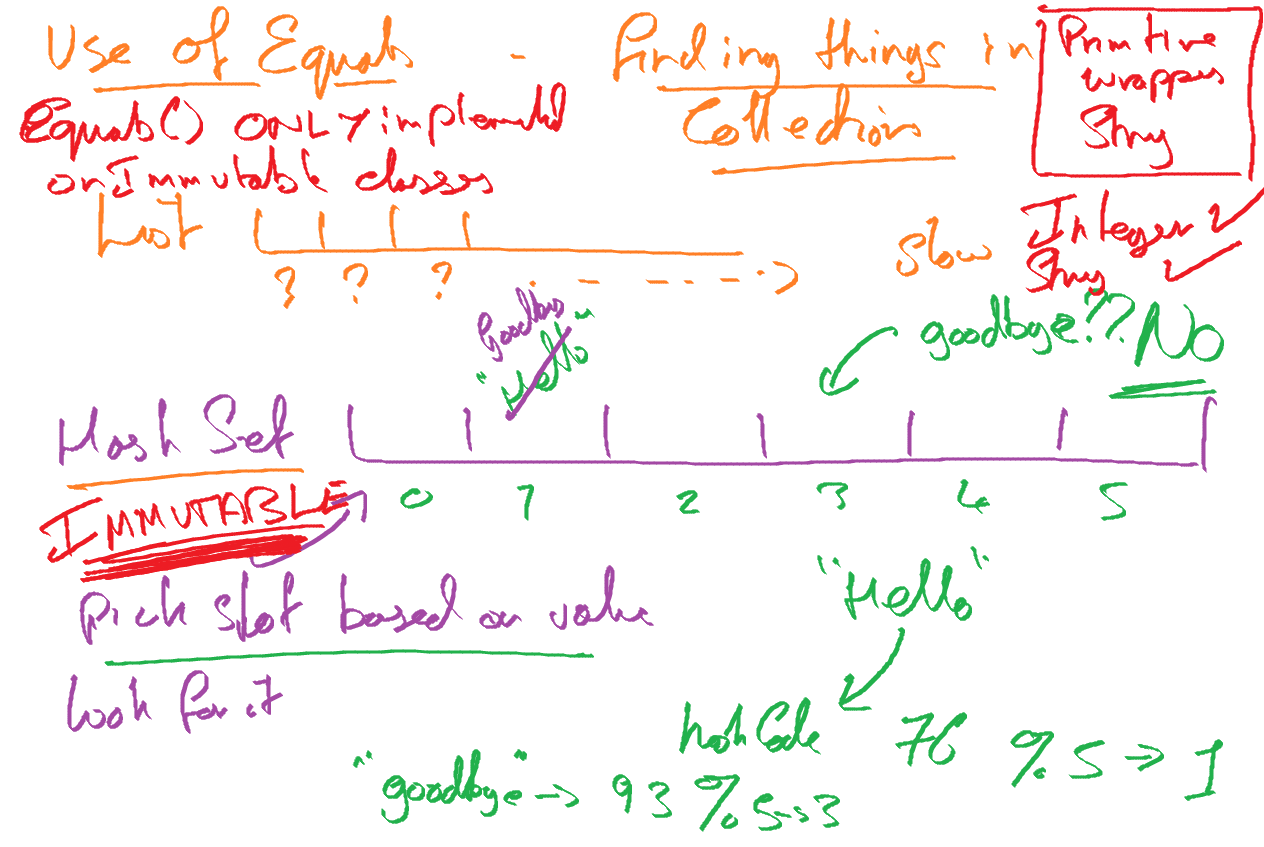 Use of Equals - Finding things in
Collections
Primitive
wrappers
String
Equals() ONLY implemented
on Immutable classes
List
? ? ? . - - - - - >
slow
Integer ✓
String ✓
Goodbye
"Hello"
goodbye?? No
Hash Set
0 1 2 3 4 5
IMMUTABLE
Pick slot based on value
look for it
"Hello"
hashCode 76 % 5 → 1
"goodbye" → 93 % 5 → 3